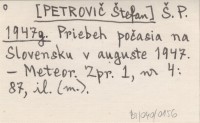 [PETROVIČ Štefan] Š. P.
1947g. Priebeh počasia na
Slovensku v auguste 1947.
— Meteor. Zpr. 1, nr 4:
87, il. (m.).